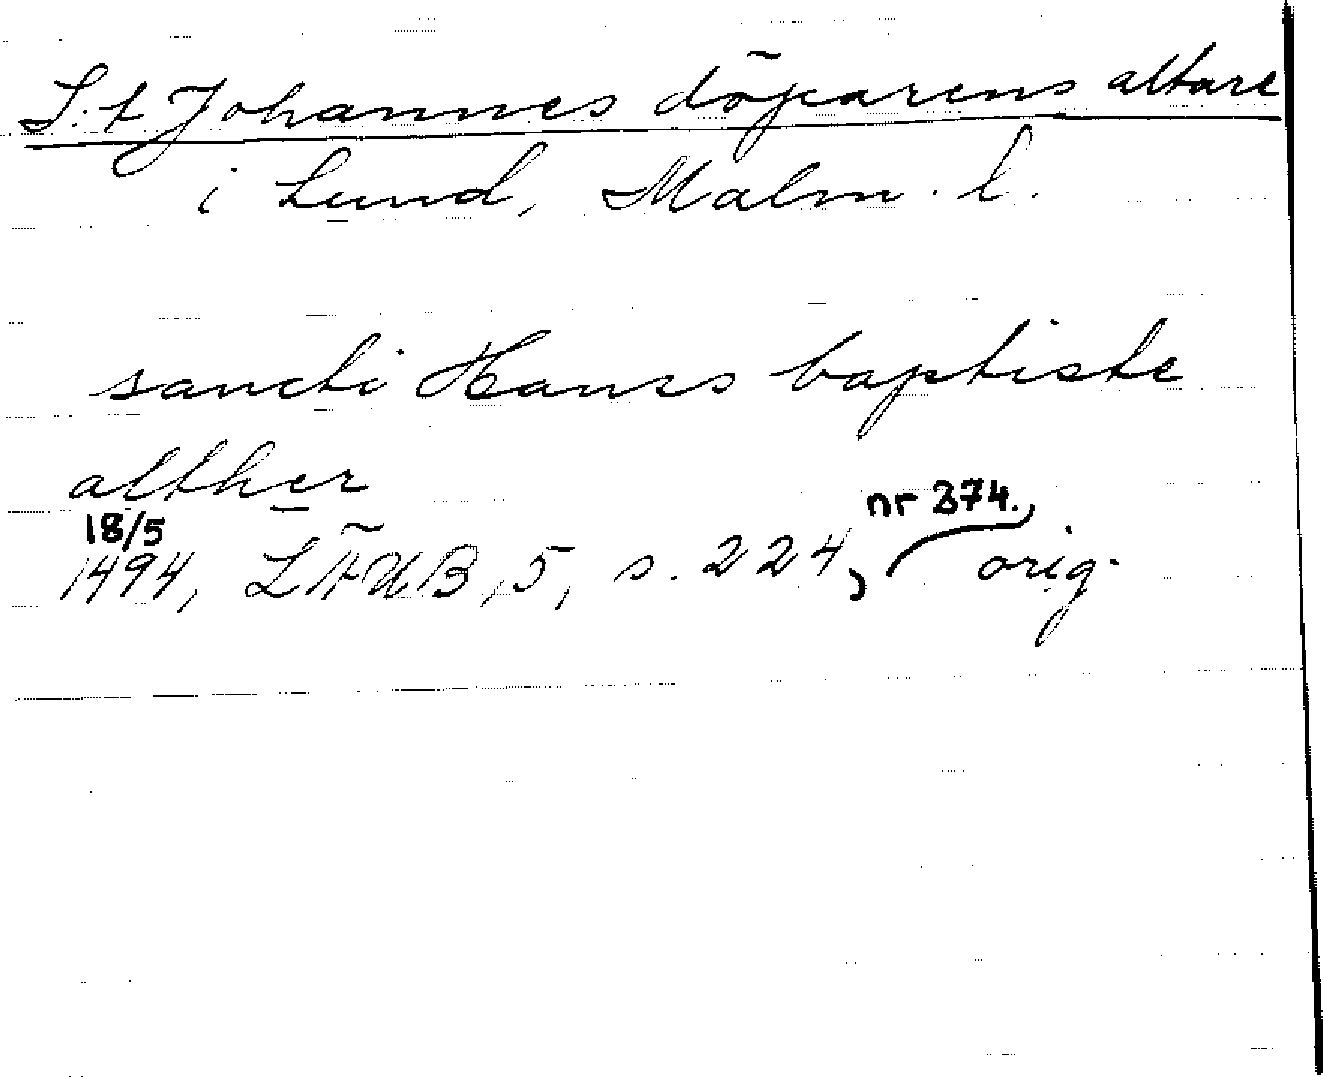 S:t Johannes döparens altare
i Lund, Malm. l.
sancti Hanss baptiste
alther
18/5 nr 374.,
1494, LÄUB, 5, s. 224, orig.